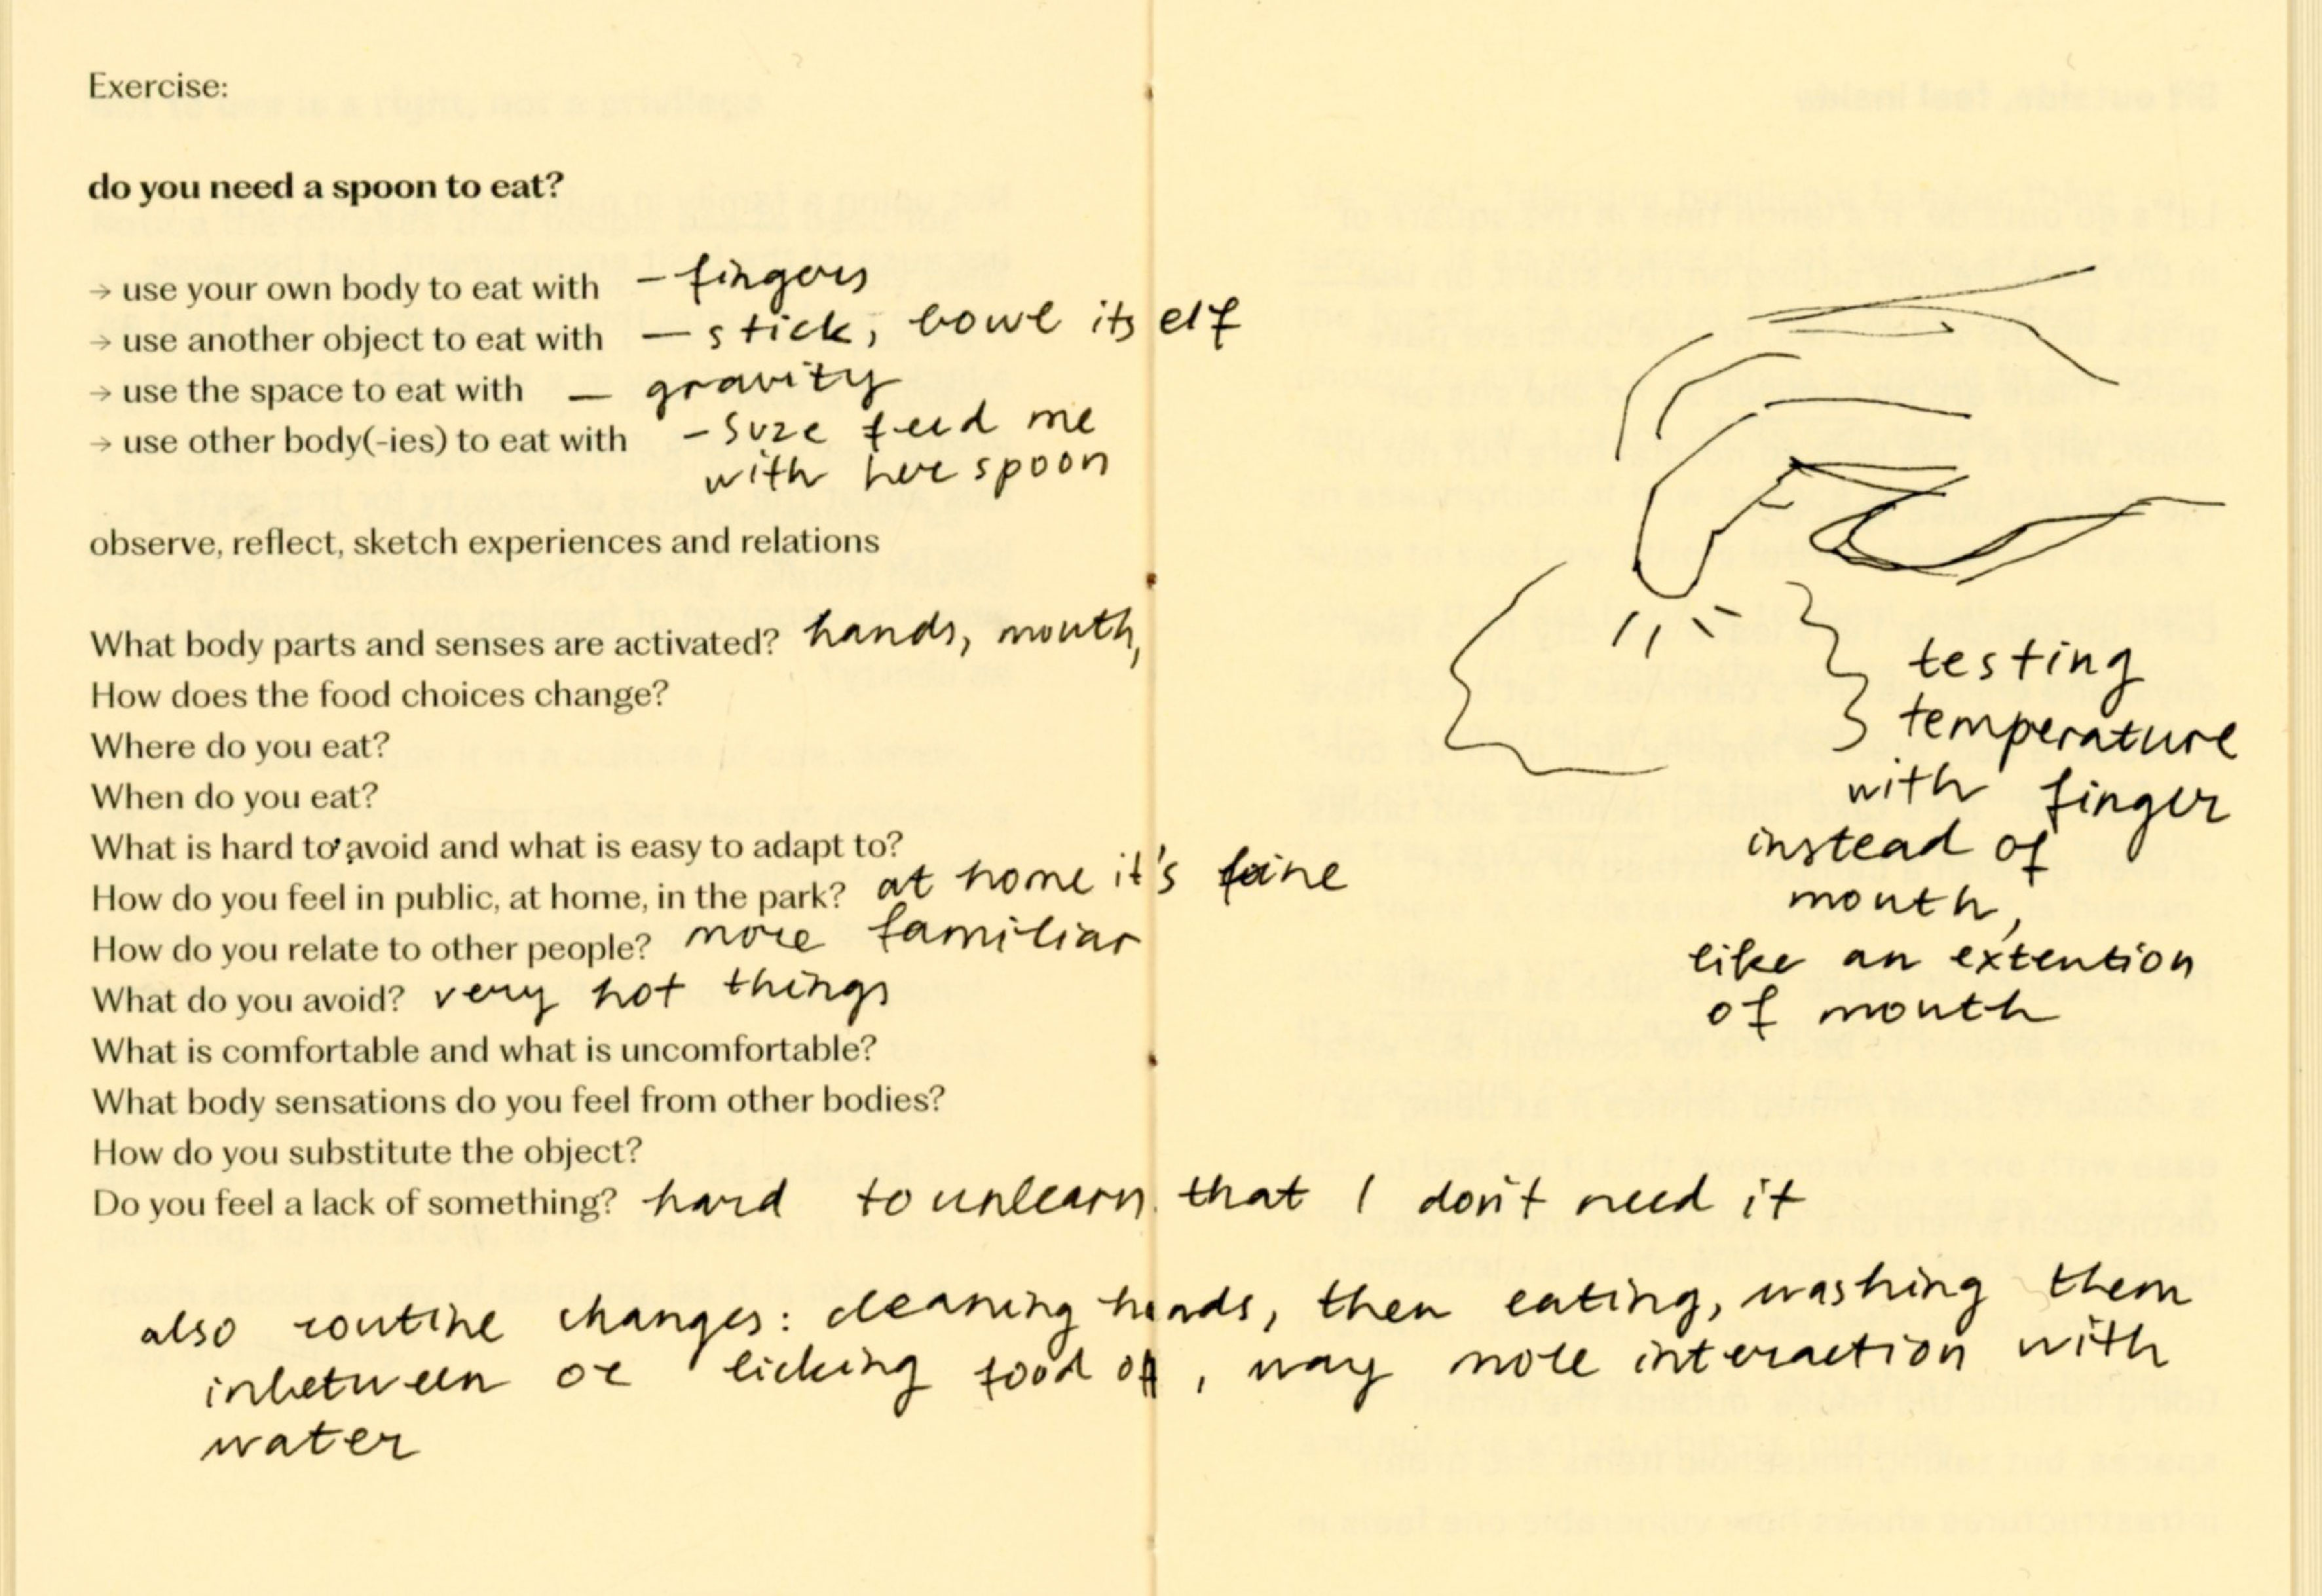 Exercise:
do you need a spoon to eat?
→ use your own body to eat with – fingers
→ use another object to eat with — stick, bowl itself
→ use the space to eat with — gravity
→ use other body(-ies) to eat with – Suze feed me
with her spoon
observe, reflect, sketch experiences and relations
What body parts and senses are activated? hands, mouth,
How does the food choices change?
Where do you eat?
When do you eat?
What is hard to avoid and what is easy to adapt to?
How do you feel in public, at home, in the park? at home it's fine
How do you relate to other people? more familiar
What do you avoid? very hot things
What is comfortable and what is uncomfortable?
What body sensations do you feel from other bodies?
How do you substitute the object?
Do you feel a lack of something? hard to unlearn that I don't need it
also routine changes: cleaning hands, then eating, washing them
inbetween or licking food off, way more interaction with
water
testing
temperature
with finger
instead of
mouth,
like an extention
of mouth